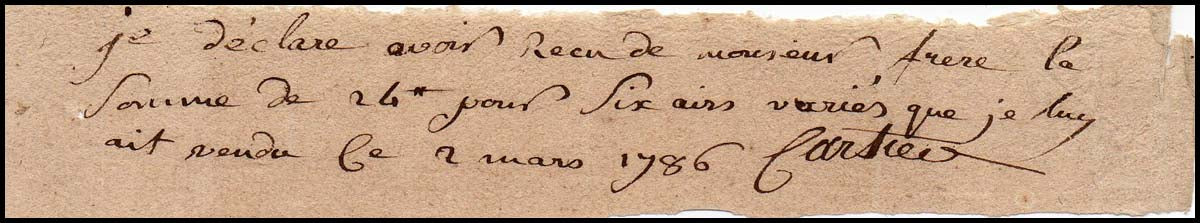 je déclare avoir Recu de monsieur frere la
Somme de 24# pour Six airs variés que je luy
ait vendu Ce 2 mars 1786 Cartier